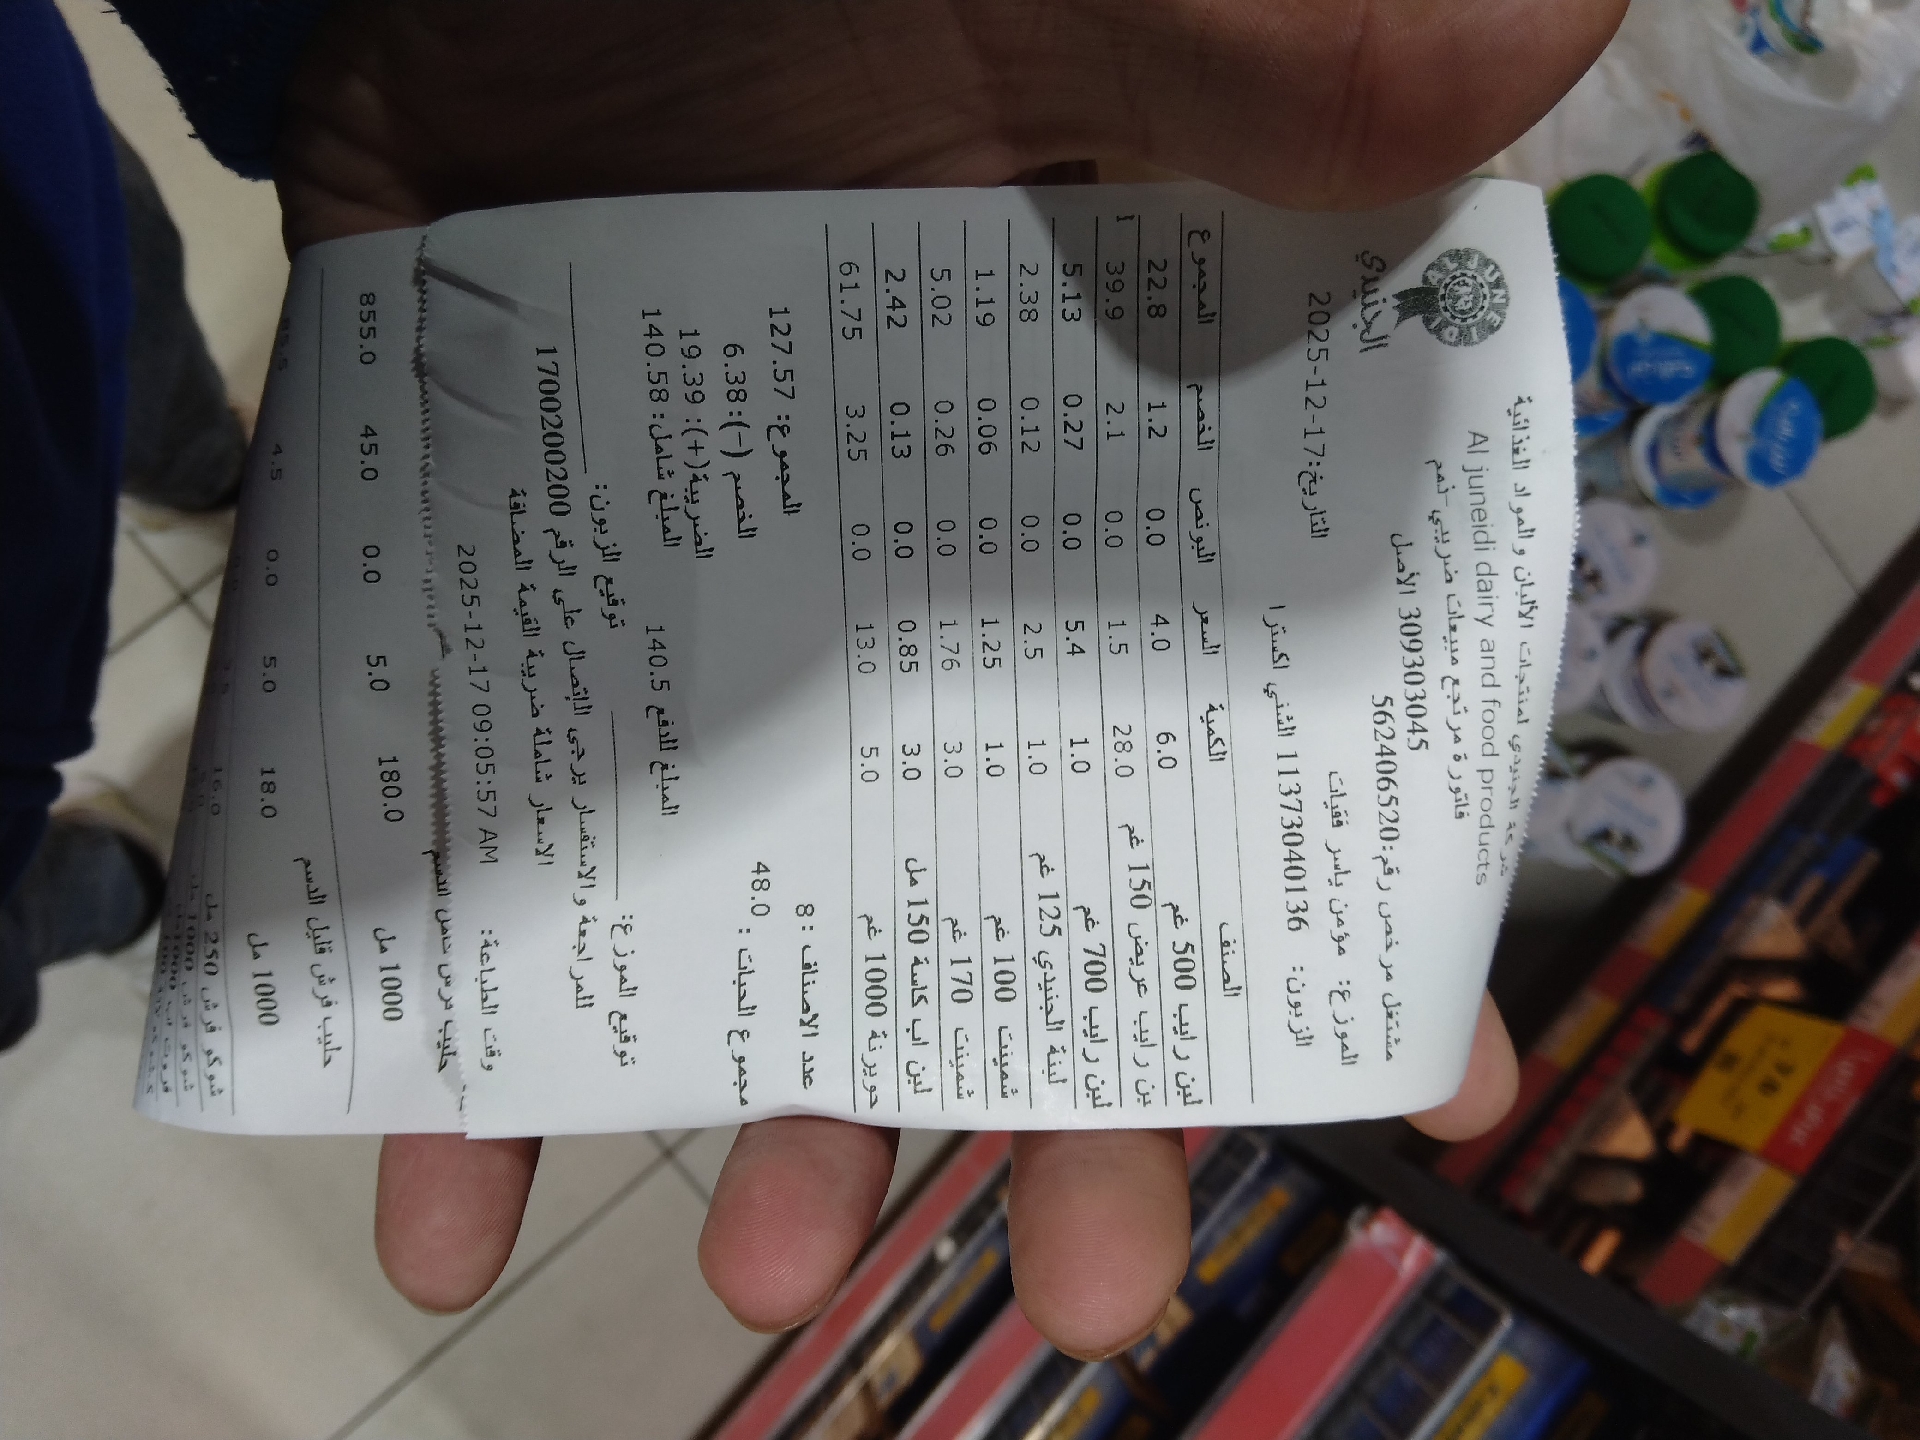 AL JUNEIDI
الجنيدي
شركة الجنيدي لمنتجات الألبان والمواد الغذائية
Al juneidi dairy and food products
فاتورة مرتجع مبيعات ضريبي-ذمم
309303045 الأصل
مشتغل مرخص رقم:562406520
التاريخ:2025-12-17
الموزع: مؤمن ياسر فقيات
الزبون: 1137304013​6 الشني اكسترا
الصنف الكمية السعر البونص الخصم المجموع
لبن رايب 500 غم 6.0 4.0 0.0 1.2 22.8
بن رايب عريض 150 غم 28.0 1.5 0.0 2.1 39.9
لبن رايب 700 غم 1.0 5.4 0.0 0.27 5.13
لبنة الجنيدي 125 غم 1.0 2.5 0.0 0.12 2.38
شمينت 100 غم 1.0 1.25 0.0 0.06 1.19
شمينت 170 غم 3.0 1.76 0.0 0.26 5.02
لبن اب كاسة 150 مل 3.0 0.85 0.0 0.13 2.42
حويرنة 1000 غم 5.0 13.0 0.0 3.25 61.75
عدد الاصناف : 8 المجموع: 127.57
مجموع الحبات : 48.0 الخصم (-): 6.38
الضريبة(+): 19.39
المبلغ شامل: 140.58
المبلغ للدفع 140.5
توقيع الموزع: توقيع الزبون:
للمراجعة والاستفسار يرجى الاتصال على الرقم 1700200200
الاسعار شاملة ضريبة القيمة المضافة
وقت الطباعة: 2025-12-17 09:05:57 AM
1000 مل 180.0 5.0 0.0 45.0 855.0
حليب فرش قليل الدسم
1000 مل 18.0 5.0 0.0 4.5
شوكو فرش 250 مل 16.0